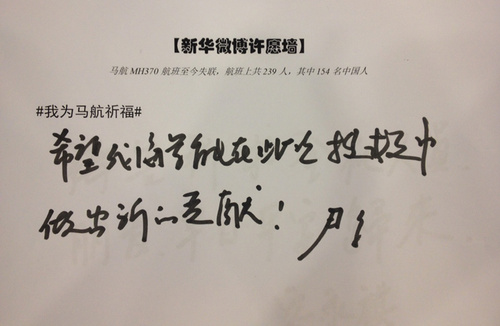 【新华微博许愿墙】
马航 MH370 航班至今失联，航班上共 239 人，其中 154 名中国人
#我为马航祈福#
希望我海军能在此次搜救中
做出新的贡献！